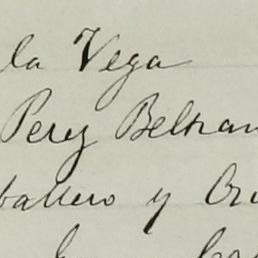 la Vega
Perez Beltran
ballero y